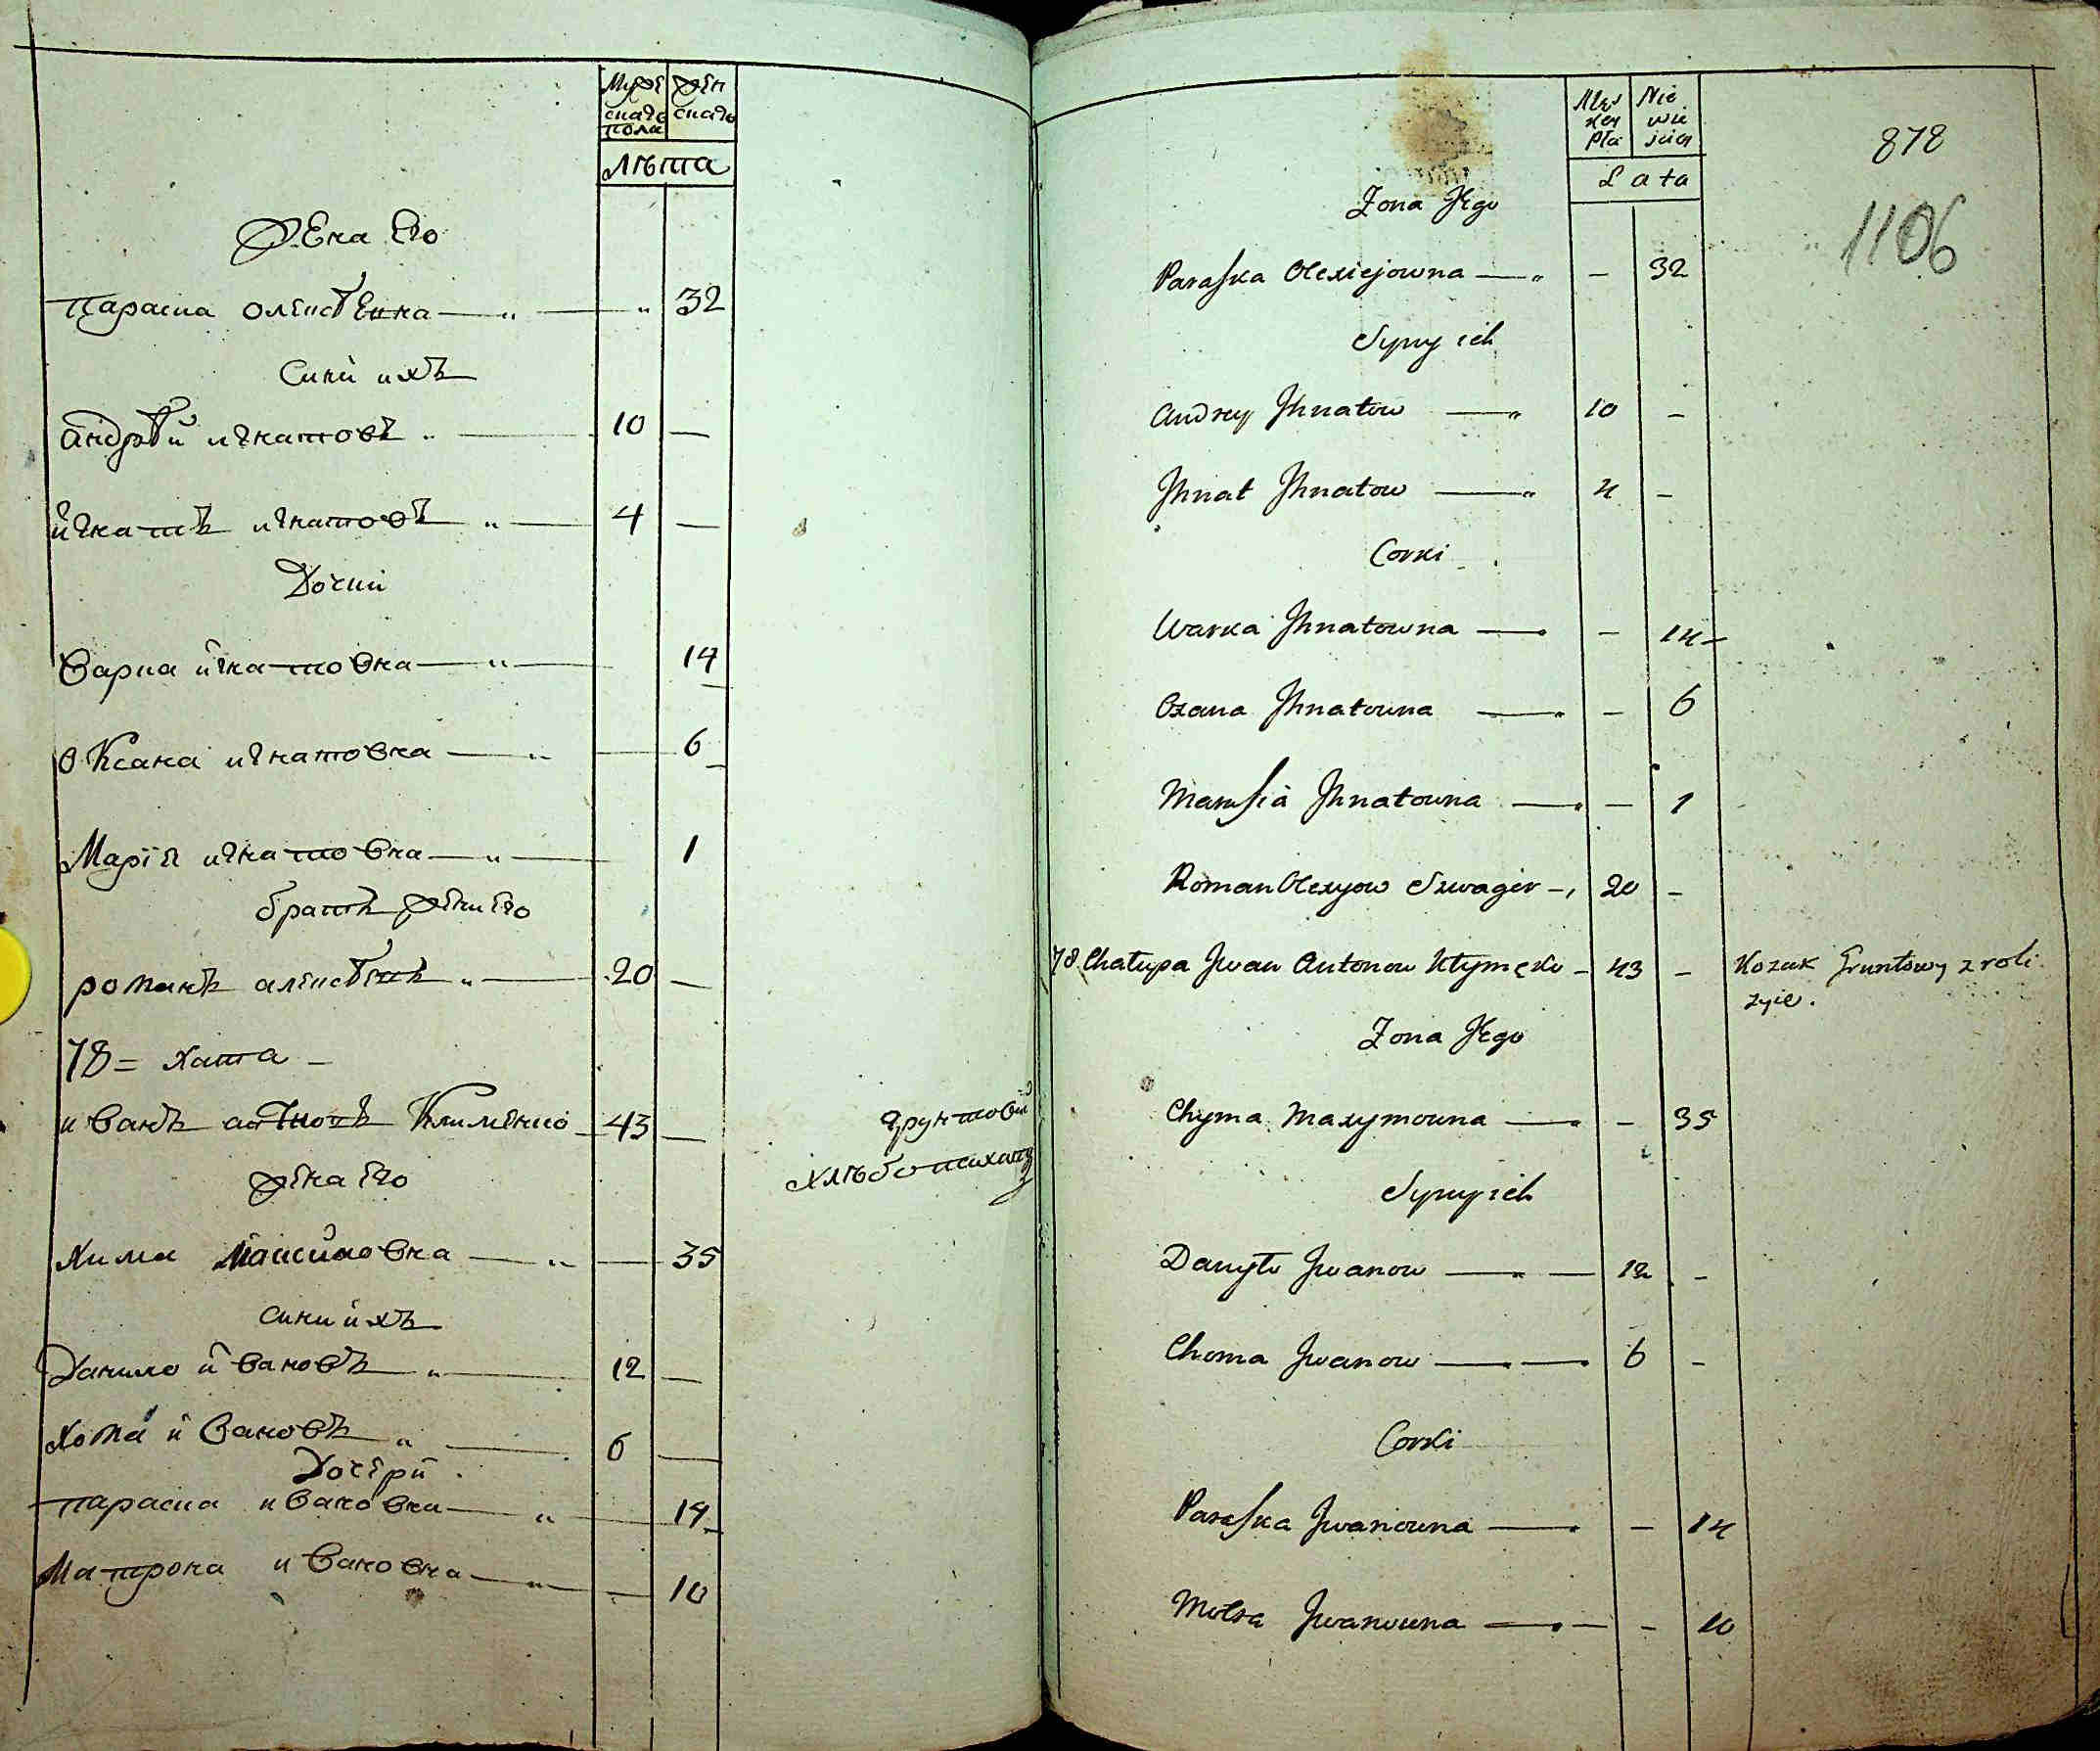 Муже
скаго
пола
жен
скаго
лѣта
Жена Его
Параска Олексѣевна — „ — „ 32
Сини ихъ
Андрѣй игнатовъ „ — 10 —
игнатъ игнатовъ „ — 4 —
Дочки
Варка игнатовна — „ — 14
Оксана игнатовна — „ — 6
Марія игнатовна — „ — 1
братъ жени его
романъ алексѣевъ „ — 20 —
78 = хата —
иванъ Клименко — 43 —
грунтовій
хлѣбопашецъ
жена его
Хима Максимовна — „ — 35
сини ихъ
Данило ивановъ „ — 12 —
Хома ивановъ „ — 6 —
Дочери
параска ивановна — „ — 14
Матрона ивановна — „ — 10
Męs
key
Płci
Nie
wie
sciey
Lata
878
1106
Zona Jego
Paraska Olexiejowna — „ — 32
Synowie ich
Andrey Jhnatow — „ 10 —
Jhnat Jhnatow — „ 4 —
Corki
Warka Jhnatowna — — 14
Oxana Jhnatowna — — 6
Marusia Jhnatowna — — 1
Roman Olexyow Szwagier — 20 —
78 Chałupa Jwan Antonow Kłymęko — 43 —
Kozak Gruntowy z roli
zyie.
Zona Jego
Chyma Maxymowna — — 35
Syny ich
Danyło Jwanow — — 12 —
Choma Jwanow — — 6 —
Corki
Paraska Jwanowna — — 14
Motra Jwanowna — — 10